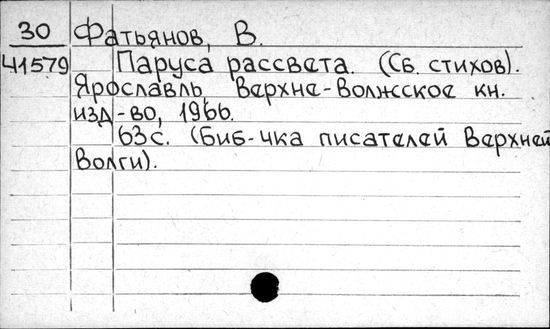 30 Фатьянов, В.
41579 Паруса рассвета. (Сб. стихов).
Ярославль, Верхне-Волжское кн.
изд-во, 1966.
63с. (биб-чка писателей Верхней
Волги).